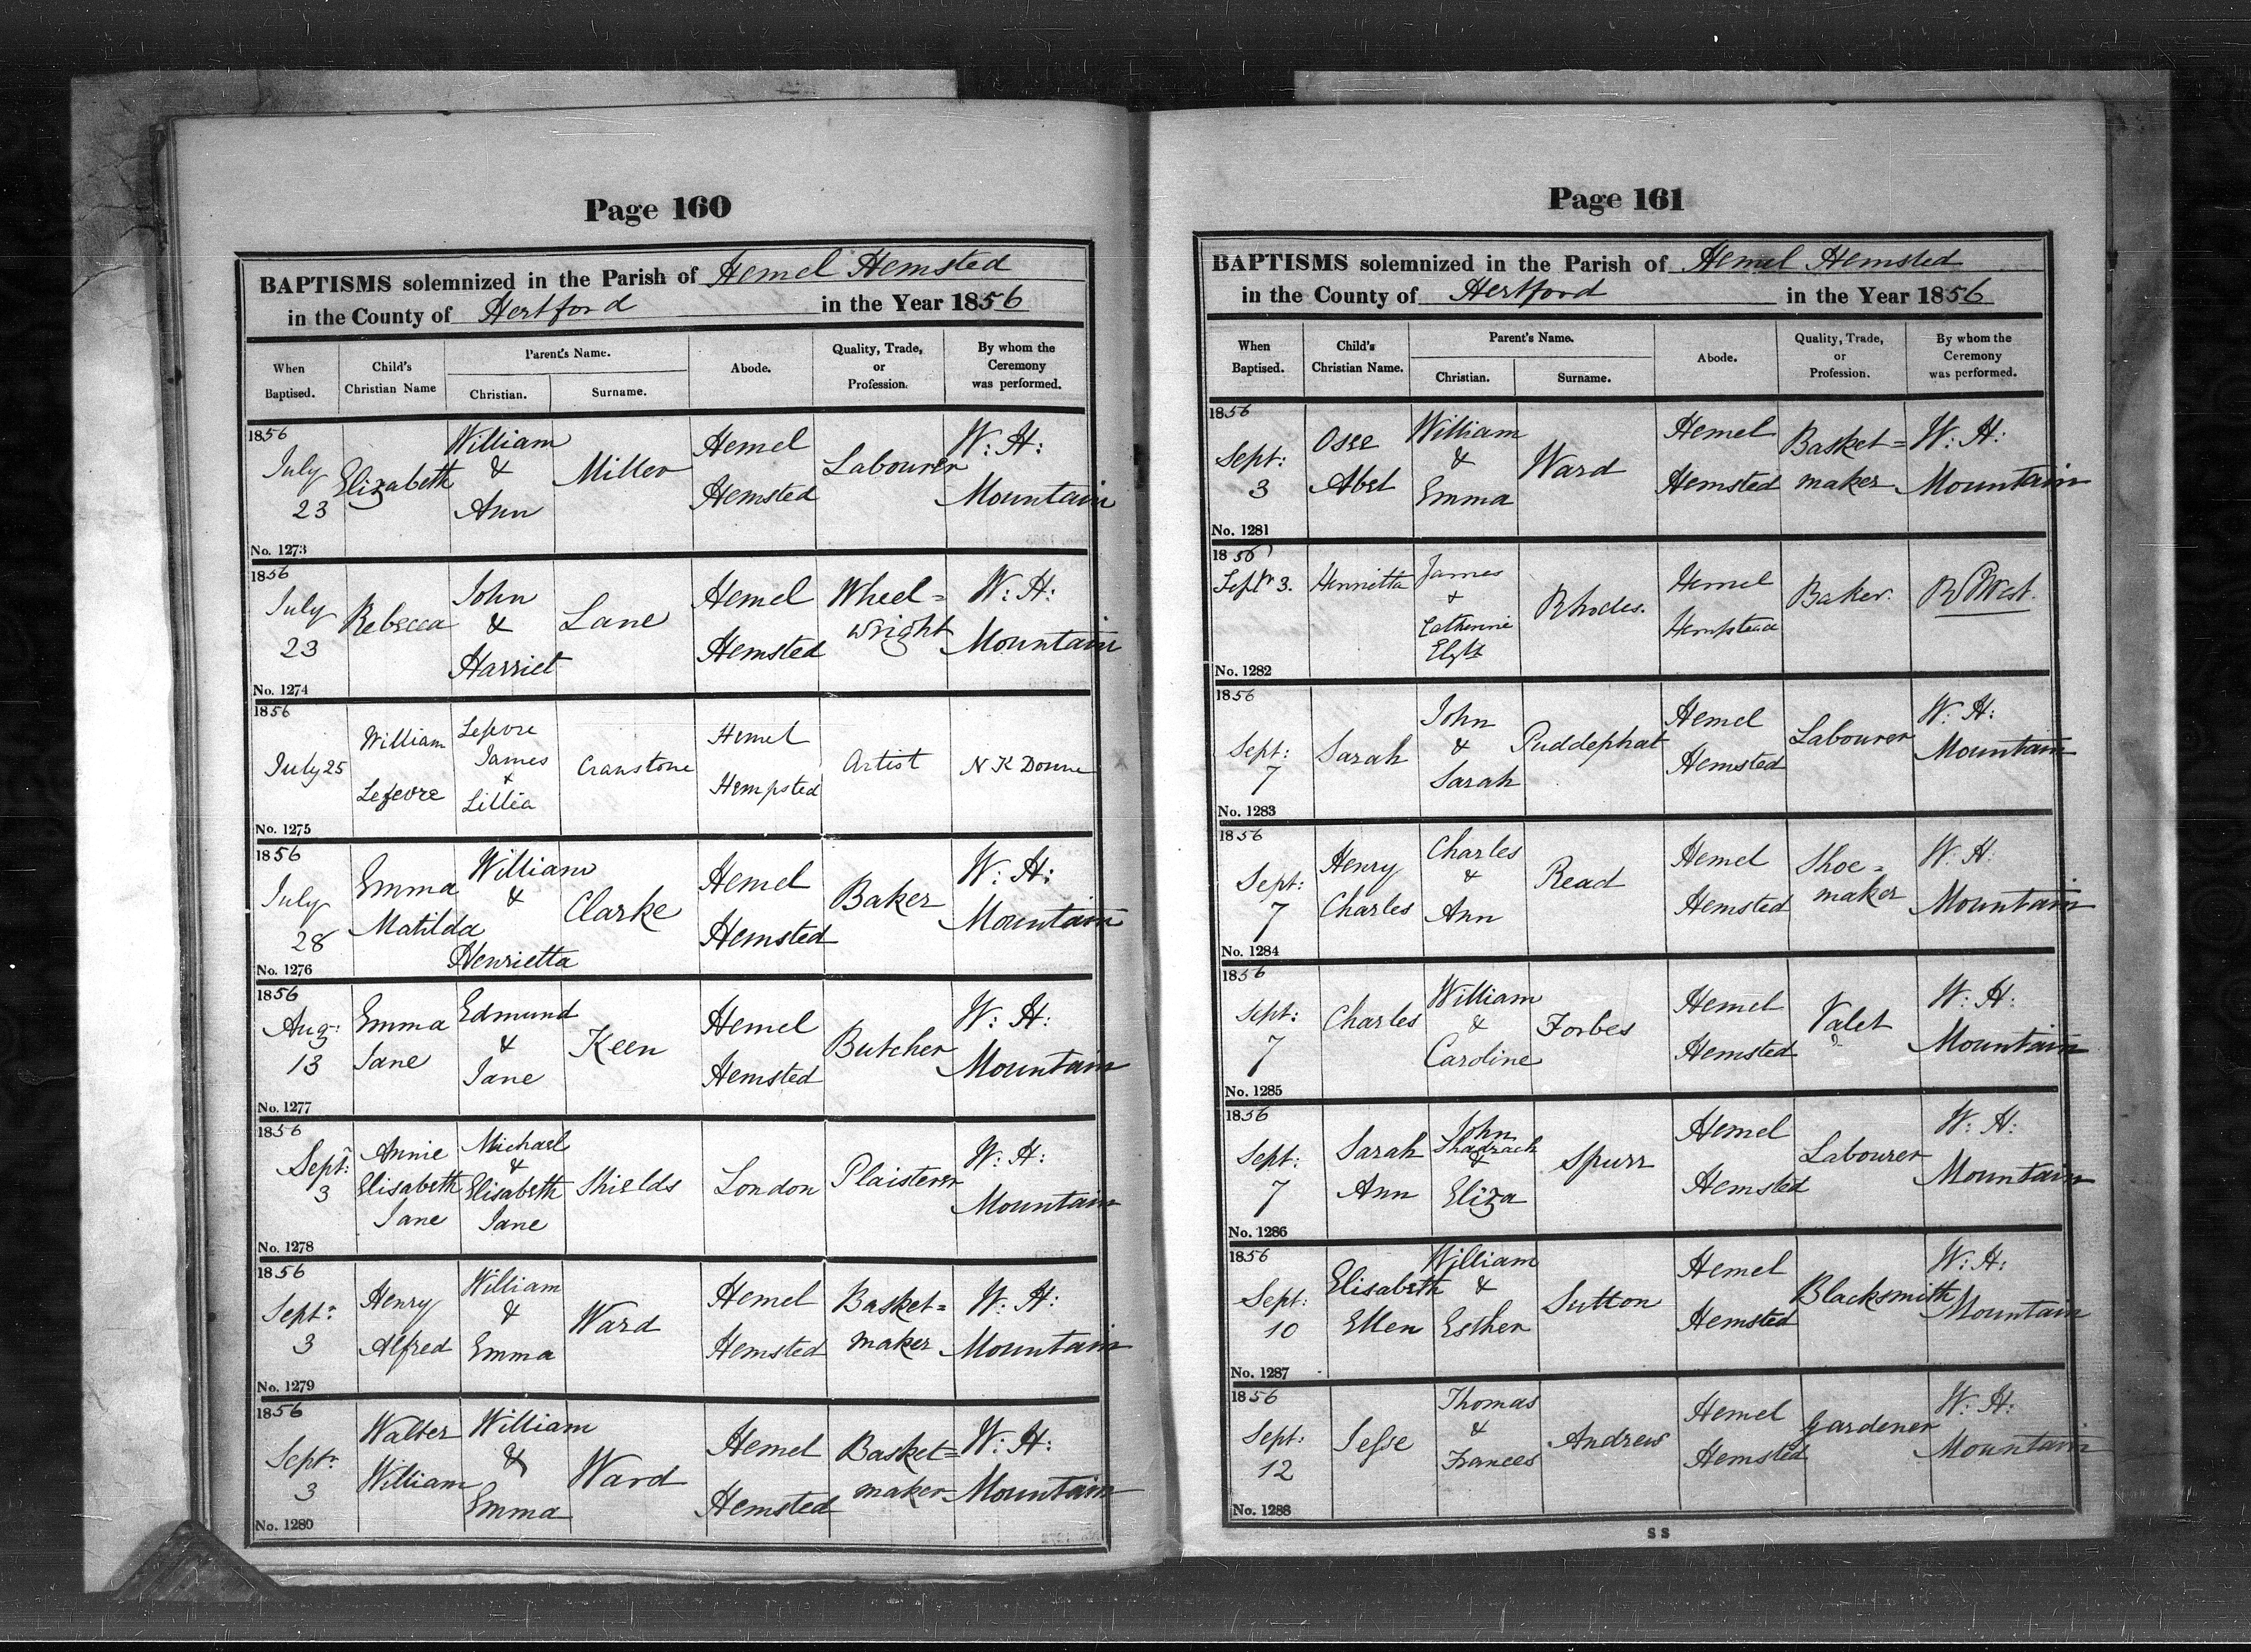 Page 160
BAPTISMS solemnized in the Parish of Hemel Hemsted
in the County of Hertford in the Year 1856
When Baptised.
Child's Christian Name
Parent's Name.
Christian.
Surname.
Abode.
Quality, Trade, or Profession.
By whom the Ceremony was performed.
1856 July 23 Elizabeth William & Ann Miller Hemel Hemsted Labourer W: H: Mountain
No. 1273
1856 July 23 Rebecca John & Harriet Lane Hemel Hemsted Wheel=wright W: H: Mountain
No. 1274
1856 July 25 William Lefevre Lefevre James & Lillia Cranstone Hemel Hempsted Artist N K Donne
No. 1275
1856 July 28 Emma Matilda William & Henrietta Clarke Hemel Hemsted Baker W: H: Mountain
No. 1276
1856 Aug: 13 Emma Jane Edmund & Jane Keen Hemel Hemsted Butcher W: H: Mountain
No. 1277
1856 Sept: 3 Annie Elisabeth Jane Michael & Elisabeth Jane Shields London Plaisterer W: H: Mountain
No. 1278
1856 Sept: 3 Henry Alfred William & Emma Ward Hemel Hemsted Basket=maker W: H: Mountain
No. 1279
1856 Sept: 3 Walter William William & Emma Ward Hemel Hemsted Basket=maker W: H: Mountain
No. 1280
Page 161
BAPTISMS solemnized in the Parish of Hemel Hemsted
in the County of Hertford in the Year 1856
When Baptised.
Child's Christian Name.
Parent's Name.
Christian.
Surname.
Abode.
Quality, Trade, or Profession.
By whom the Ceremony was performed.
1856 Sept: 3 Osee Abel William & Emma Ward Hemel Hemsted Basket=maker W: H: Mountain
No. 1281
1856 Septr 3. Henrietta James & Catherine Elyth Rhodes. Hemel Hempstead Baker. West.
No. 1282
1856 Sept: 7 Sarah John & Sarah Puddephat Hemel Hemsted Labourer W: H: Mountain
No. 1283
1856 Sept: 7 Henry Charles Charles & Ann Read Hemel Hemsted Shoe=maker W. H: Mountain
No. 1284
1856 Sept: 7 Charles William & Caroline Forbes Hemel Hemsted Valet W: H: Mountain
No. 1285
1856 Sept: 7 Sarah Ann John Shadrach & Eliza Spurr Hemel Hemsted Labourer W: H: Mountain
No. 1286
1856 Sept: 10 Elisabeth Ellen William & Esther Sutton Hemel Hemsted Blacksmith W: H: Mountain
No. 1287
1856 Sept: 12 Jesse Thomas & Frances Andrew Hemel Hemsted Gardener W: H: Mountain
No. 1288
S S